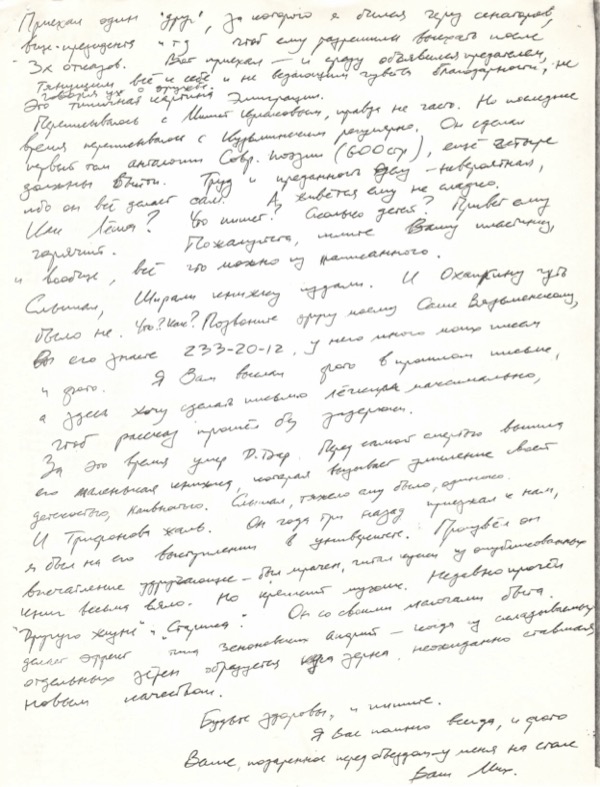 Приехал один "друг", за которого я бился через сенаторов,
вице-президента и тд чтоб ему разрешили выехать после
3х отказов. Вот приехал — и сразу объявился предателем,
тянущим всё к себе и не ведающим чувства благодарности, не
говоря уж о дружбе.
Это типичная картина Эмиграции.
Переписывалось с Мишей правда не часто. Но последнее
время переписываюсь с Кузьминским регулярно. Он сделал
первый том антологии Совр. поэзии (600 стр), ещё четыре
должны выйти. Труд и преданность делу — невероятная,
ибо он всё делает сам. А живётся ему не сладко.
Как Лёша? Что пишет? Сколько детей? Привет ему
горячий. Пожалуйста, шлите Вашу пластинку,
и вообще, всё что можно из написанного.
Слышал, Ширали книжку издали. И Охапкину чуть
было не. Что? Как? Позвоните другу моему Саше Вязьменскому,
Вы его знаете 233-20-12, у него много моих писем
и фото. Я Вам выслал фото в прошлом письме,
а здесь хочу сделать письмо лёгким максимально,
чтоб рассказ прошёл без задержки.
За это время умер Д. Дар. Перед самой смертью вышла
его маленькая книжка, которая вызывает умиление своей
детскостью, наивностью. Слышал, тяжело ему было, одиноко.
И Трифонова жаль. Он года три назад приезжал к нам,
я был на его выступлении в университете. Произвёл он
впечатление удручающее — был мрачен, читал куски из опубликованных
книг весьма вяло. Но крепкий мужик. Недавно прочёл
"Другую жизнь" и "Старика". Он со своими мелочами быта
делает эффект типа Зеноновских апорий — когда из складываемых
отдельных зёрен образуется куча зерна, неожиданно ставшая
новым качеством.
Будьте здоровы, и пишите.
Я Вас помню всегда, и фото
Ваше, подаренное перед отъездом — у меня на столе
Ваш Мих.